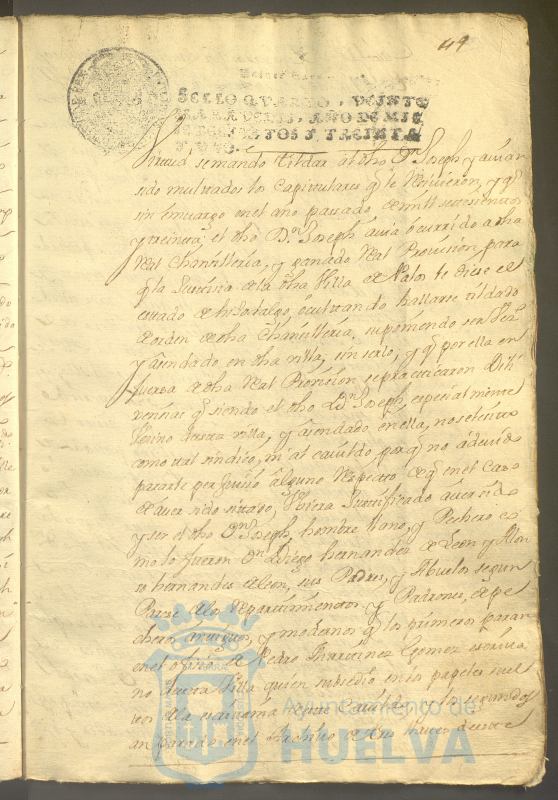 49
SELLO QVARTO, VEINTE
MARAVEDIS, AÑO DE MIL
SETECIENTOS Y TREINTA
Y VNO.
Virtud se mando tildar al dho Dn Joseph y auian
sido multados los Capitulares q le reciuieron, y q
sin embargo en el año pasado de mill setecientos
y treinta, el dho Dn Joseph auia ocurrido a dha
Real Chansilleria, y ganado Real Prouision para
q la Justicia de la dha Villa de Palos le diese el
estado de hijodalgo, ocultando hallarse tildado
de orden de dha Chansilleria, suponiendo ser Vezo
y asendado en dha villa, sin serlo, y q por ella en
fuersa de dha Real Prouision se practicaron Dili
xencias q siendo el dho Dn Joseph, especialmente
Vezino desta villa, y asendado en ella, no se le sito
como tal sindico, ni al cauildo por q no a deuido
pararle perjuisio alguno respecto de q en el Caso
de auer sido sitado, vbiera Justificado auer sido
y ser el dho Dn Joseph, hombre llano, y Pechero co
mo lo fueron Dn Diego hernandez de Leon y Alon
so hernandez de leon, sus Padres, y Abuelos segun
Parese de los Repartimientos y Padrones, de pe
cheros antiguos, y modernos q los primeros paran
en el ofisio de Pedro Martinez Gomez escriua
no desta Villa quien subsedio en los papeles suel
tos de la escriuania deste Cauildo y los segundos
an parado en el Archibo de sus
Ayuntamiento de
HUELVA